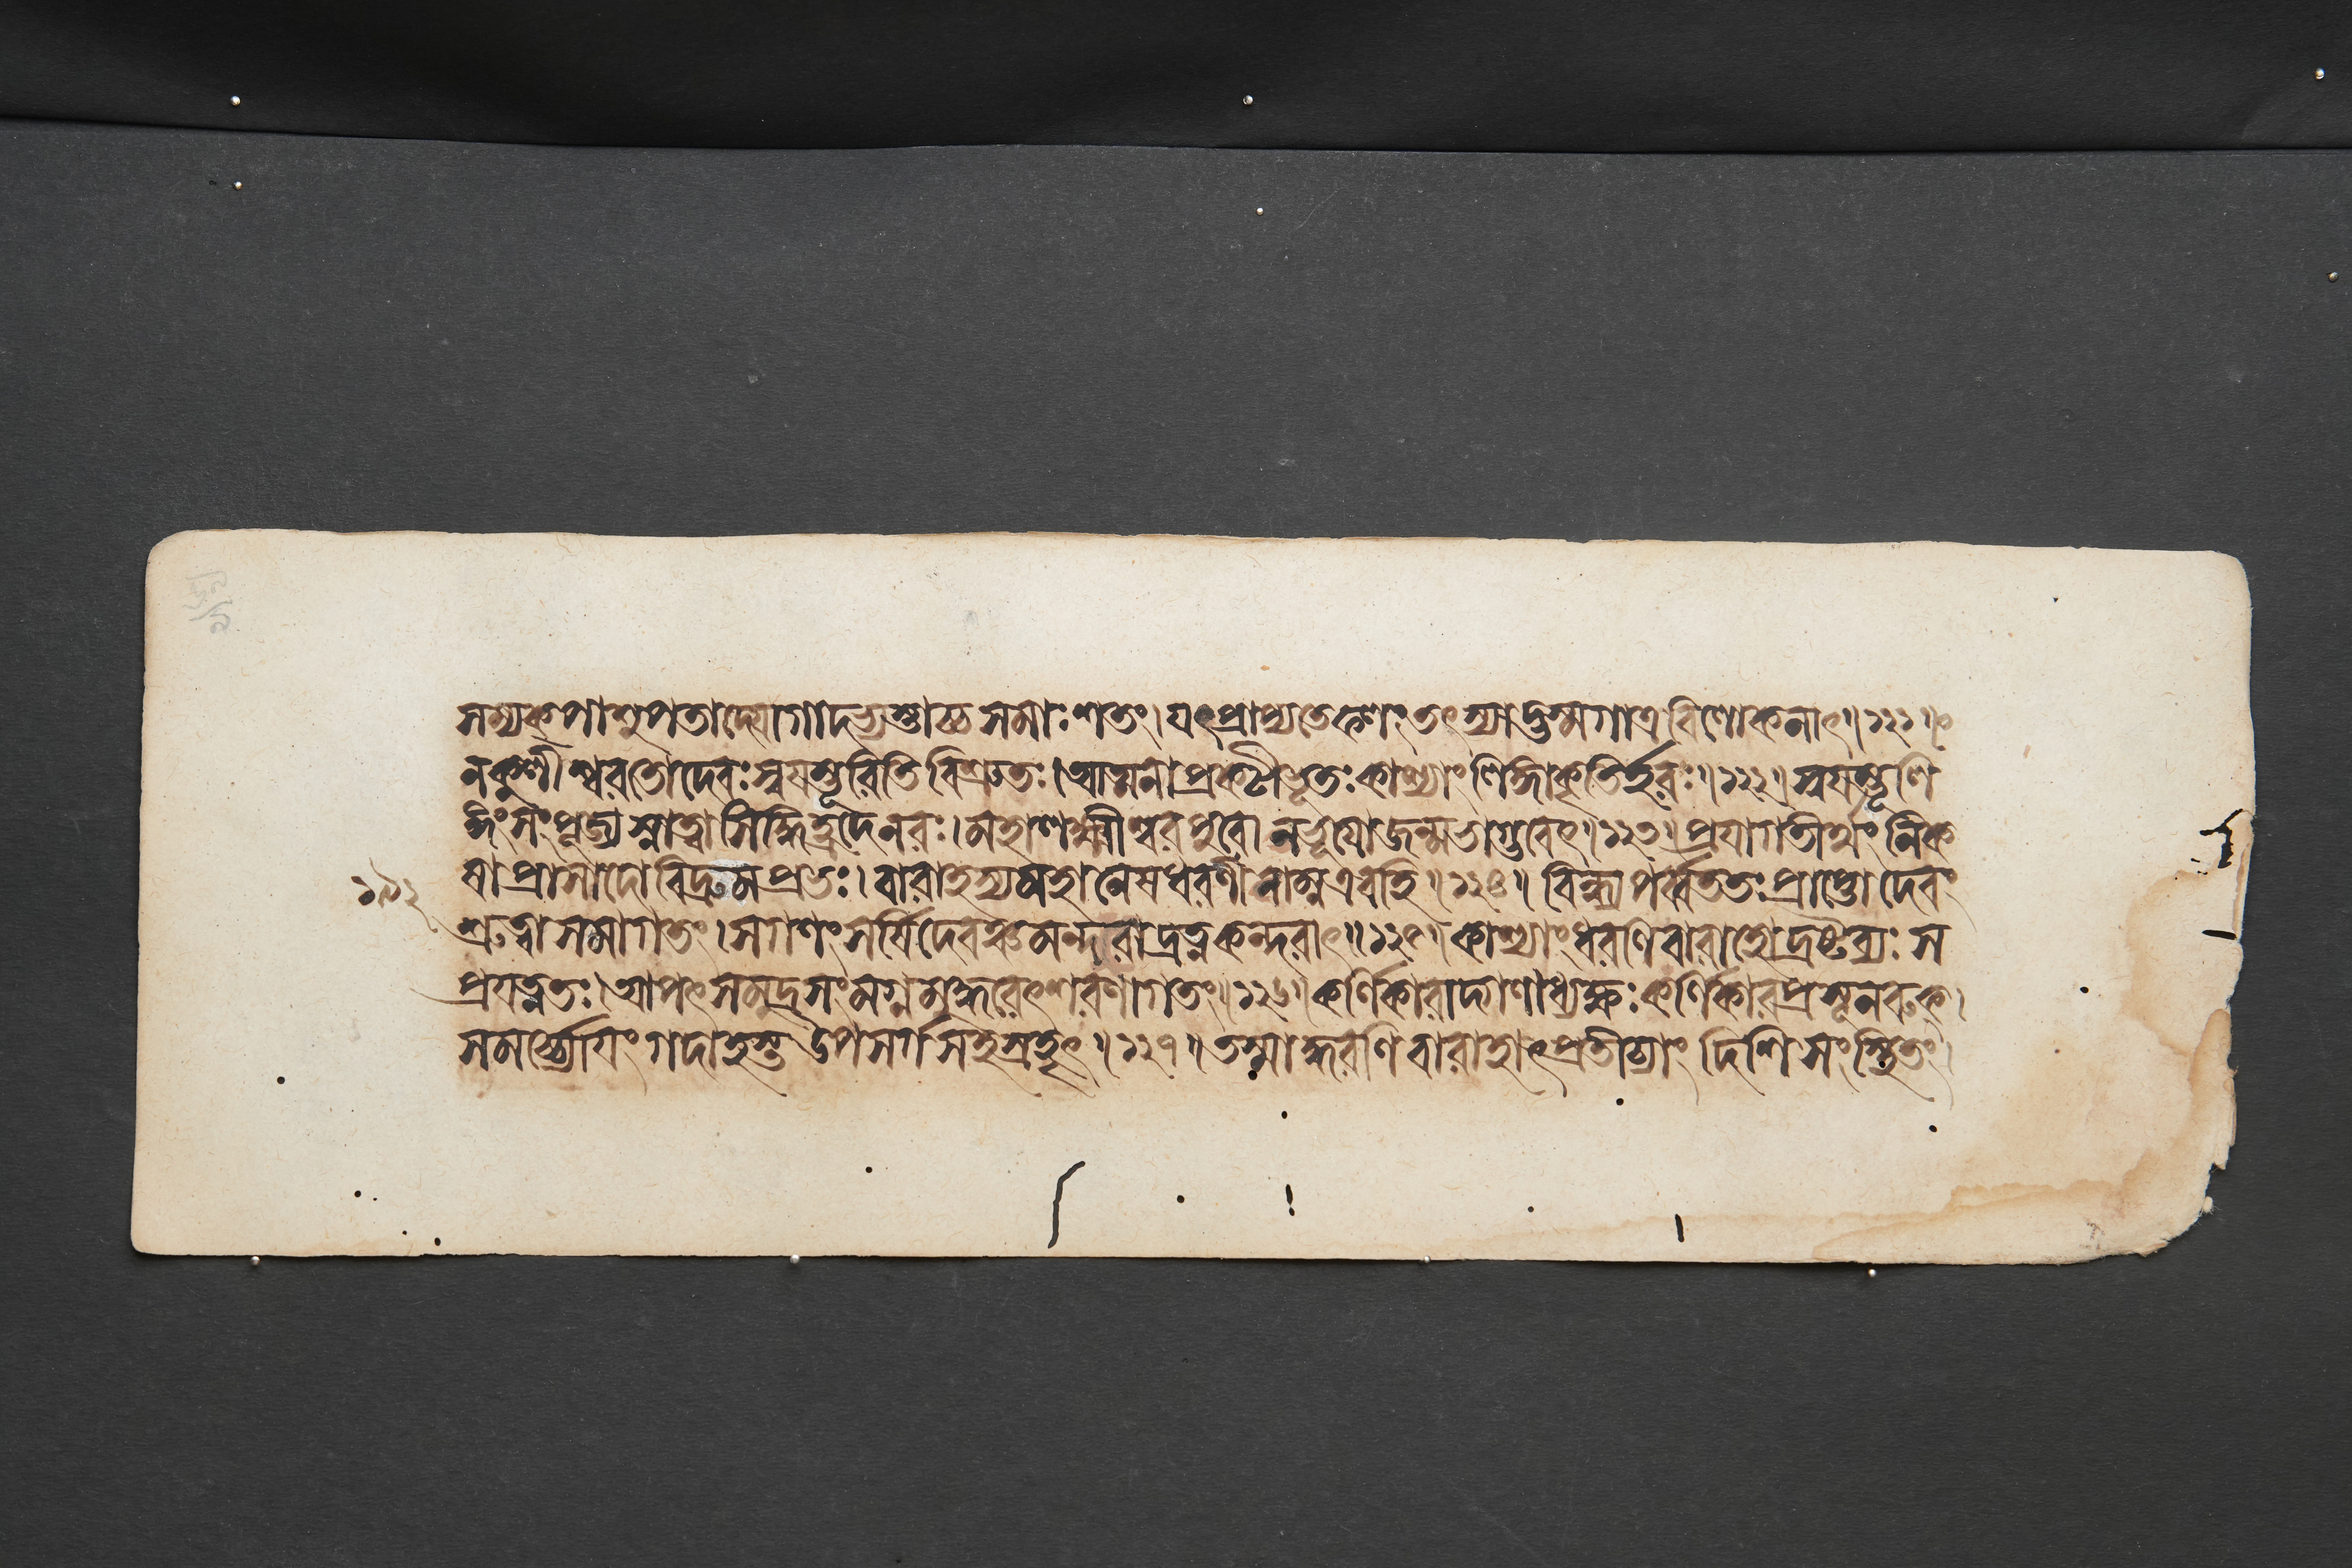 সম্যক্পাশুপতাদ্যোগাদভ্যস্তাচ্চ সমাঃশতং। যৎপ্রাপ্যতেফলং তৎস্যাদ্ভস্মগাত্র বিলোকনাৎ॥১২১॥
নকুলীশ্বরতোদেবঃ স্বয়ম্ভূরিতি বিশ্রুতঃ। আত্মনা প্রকটীভূতঃ কাশ্যাং লিঙ্গাকৃতির্হরঃ॥১২২॥ স্বয়ম্ভূলি
ঙ্গং সংপূজ্য স্নাত্বা সিদ্ধিহ্রদেনরঃ। মহালক্ষ্মীশ্বরপুরো নভূয়োজন্মভাগ্ভবেৎ॥১২৩॥ প্রয়াগতীর্থং নিক
ষা প্রাসাদো বিদ্রুমপ্রভঃ। বারাহস্যমহানেষধরণী নাম্নএবহি॥১২৪॥ বিন্ধ্যপর্ব্বততঃ প্রাপ্তো দেবং
শ্রুত্বা সমাগতং। সগণং সর্ষিদেবঞ্চ মন্দরাদ্রত্নকন্দরাৎ॥১২৫॥ কাশ্যাং ধরণিবারাহো দ্রষ্টব্যঃ স
প্রযত্নতঃ। আপৎসমুদ্রসংমগ্নমুদ্ধরেৎশরণাগতং॥১২৬॥ কর্ণিকারাদ্গণাধ্যক্ষঃ কর্ণিকারপ্রসূনরুক্।
সমর্চ্চ্যোয়ং গদাহস্ত উপসর্গসহস্রহৃৎ॥১২৭॥ তস্মাদ্ধরণিবারাহাৎপ্রতীচ্যাং দিশি সংস্থিতং।
১৯২